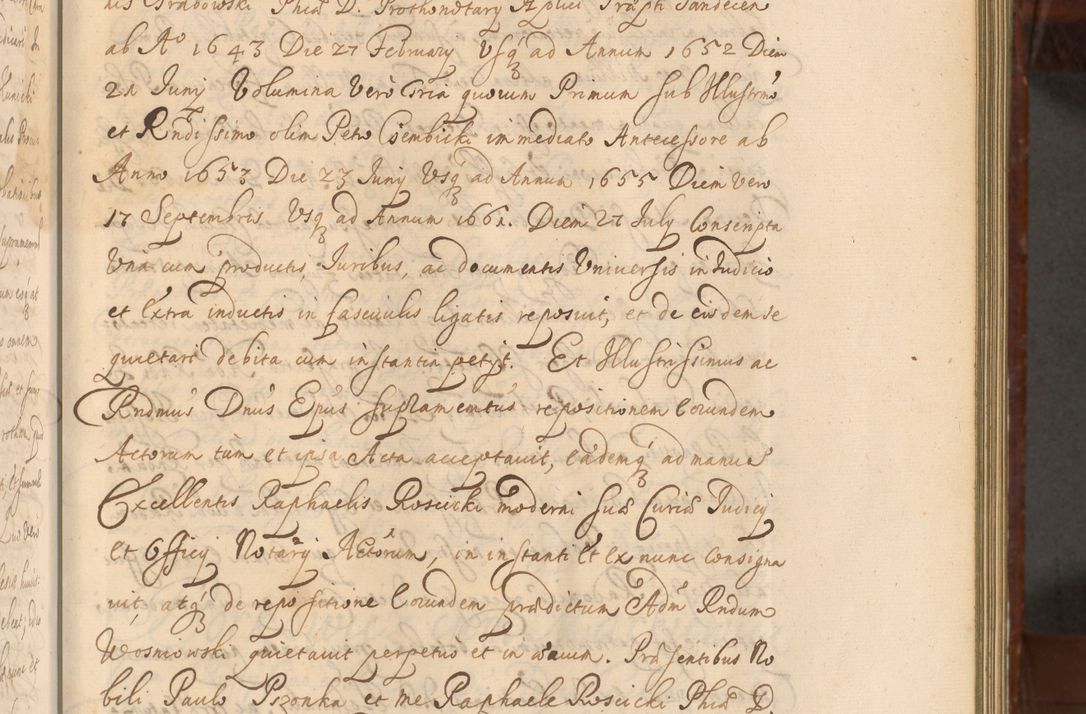 nis Grabowski Phiæ D. Prothonotary Aplici Præpti Sandecen
ab Aº 1643 Die 27 February Usq́ ad Annum 1652 Diem
21 Juny Volumina Verò tria quorum Primum sub Illustrmo
et Rndissimo olim Petro Gembicki immediato Antecessore ab
Anno 1653 Die 23 Juny Usq́ ad Annum 1655 Diem Vero
17 Septembris Usq́ ad Annum 1661. Diem 27 July Conscripta
Una cum productis, Juribus, ac documentis Universis in Judicio
et Extra inductis in fasciculis ligatis reposuit, et de eisdem se
quietari debita cum instantia petyt. Et Illustrissimus ac
Rndmus Dnus Epus supramemtus repositionem Eorundem
Actorum tum et ipsa Acta acceptauit, Eademq́ ad manus
Excellentis Raphaelis Roscicki moderni suæ Curiæ Judicy
et Officy Notary Actorum, in instanti et ex nunc Consigna
uit, atq́ de repositione Eorundem prædictum Adm Rndum
Wosniowski quietauit perpetuò et in æuum. Præsentibus No
bili Paulo Pszonka et me Raphaele Roscicki Phiæ D.